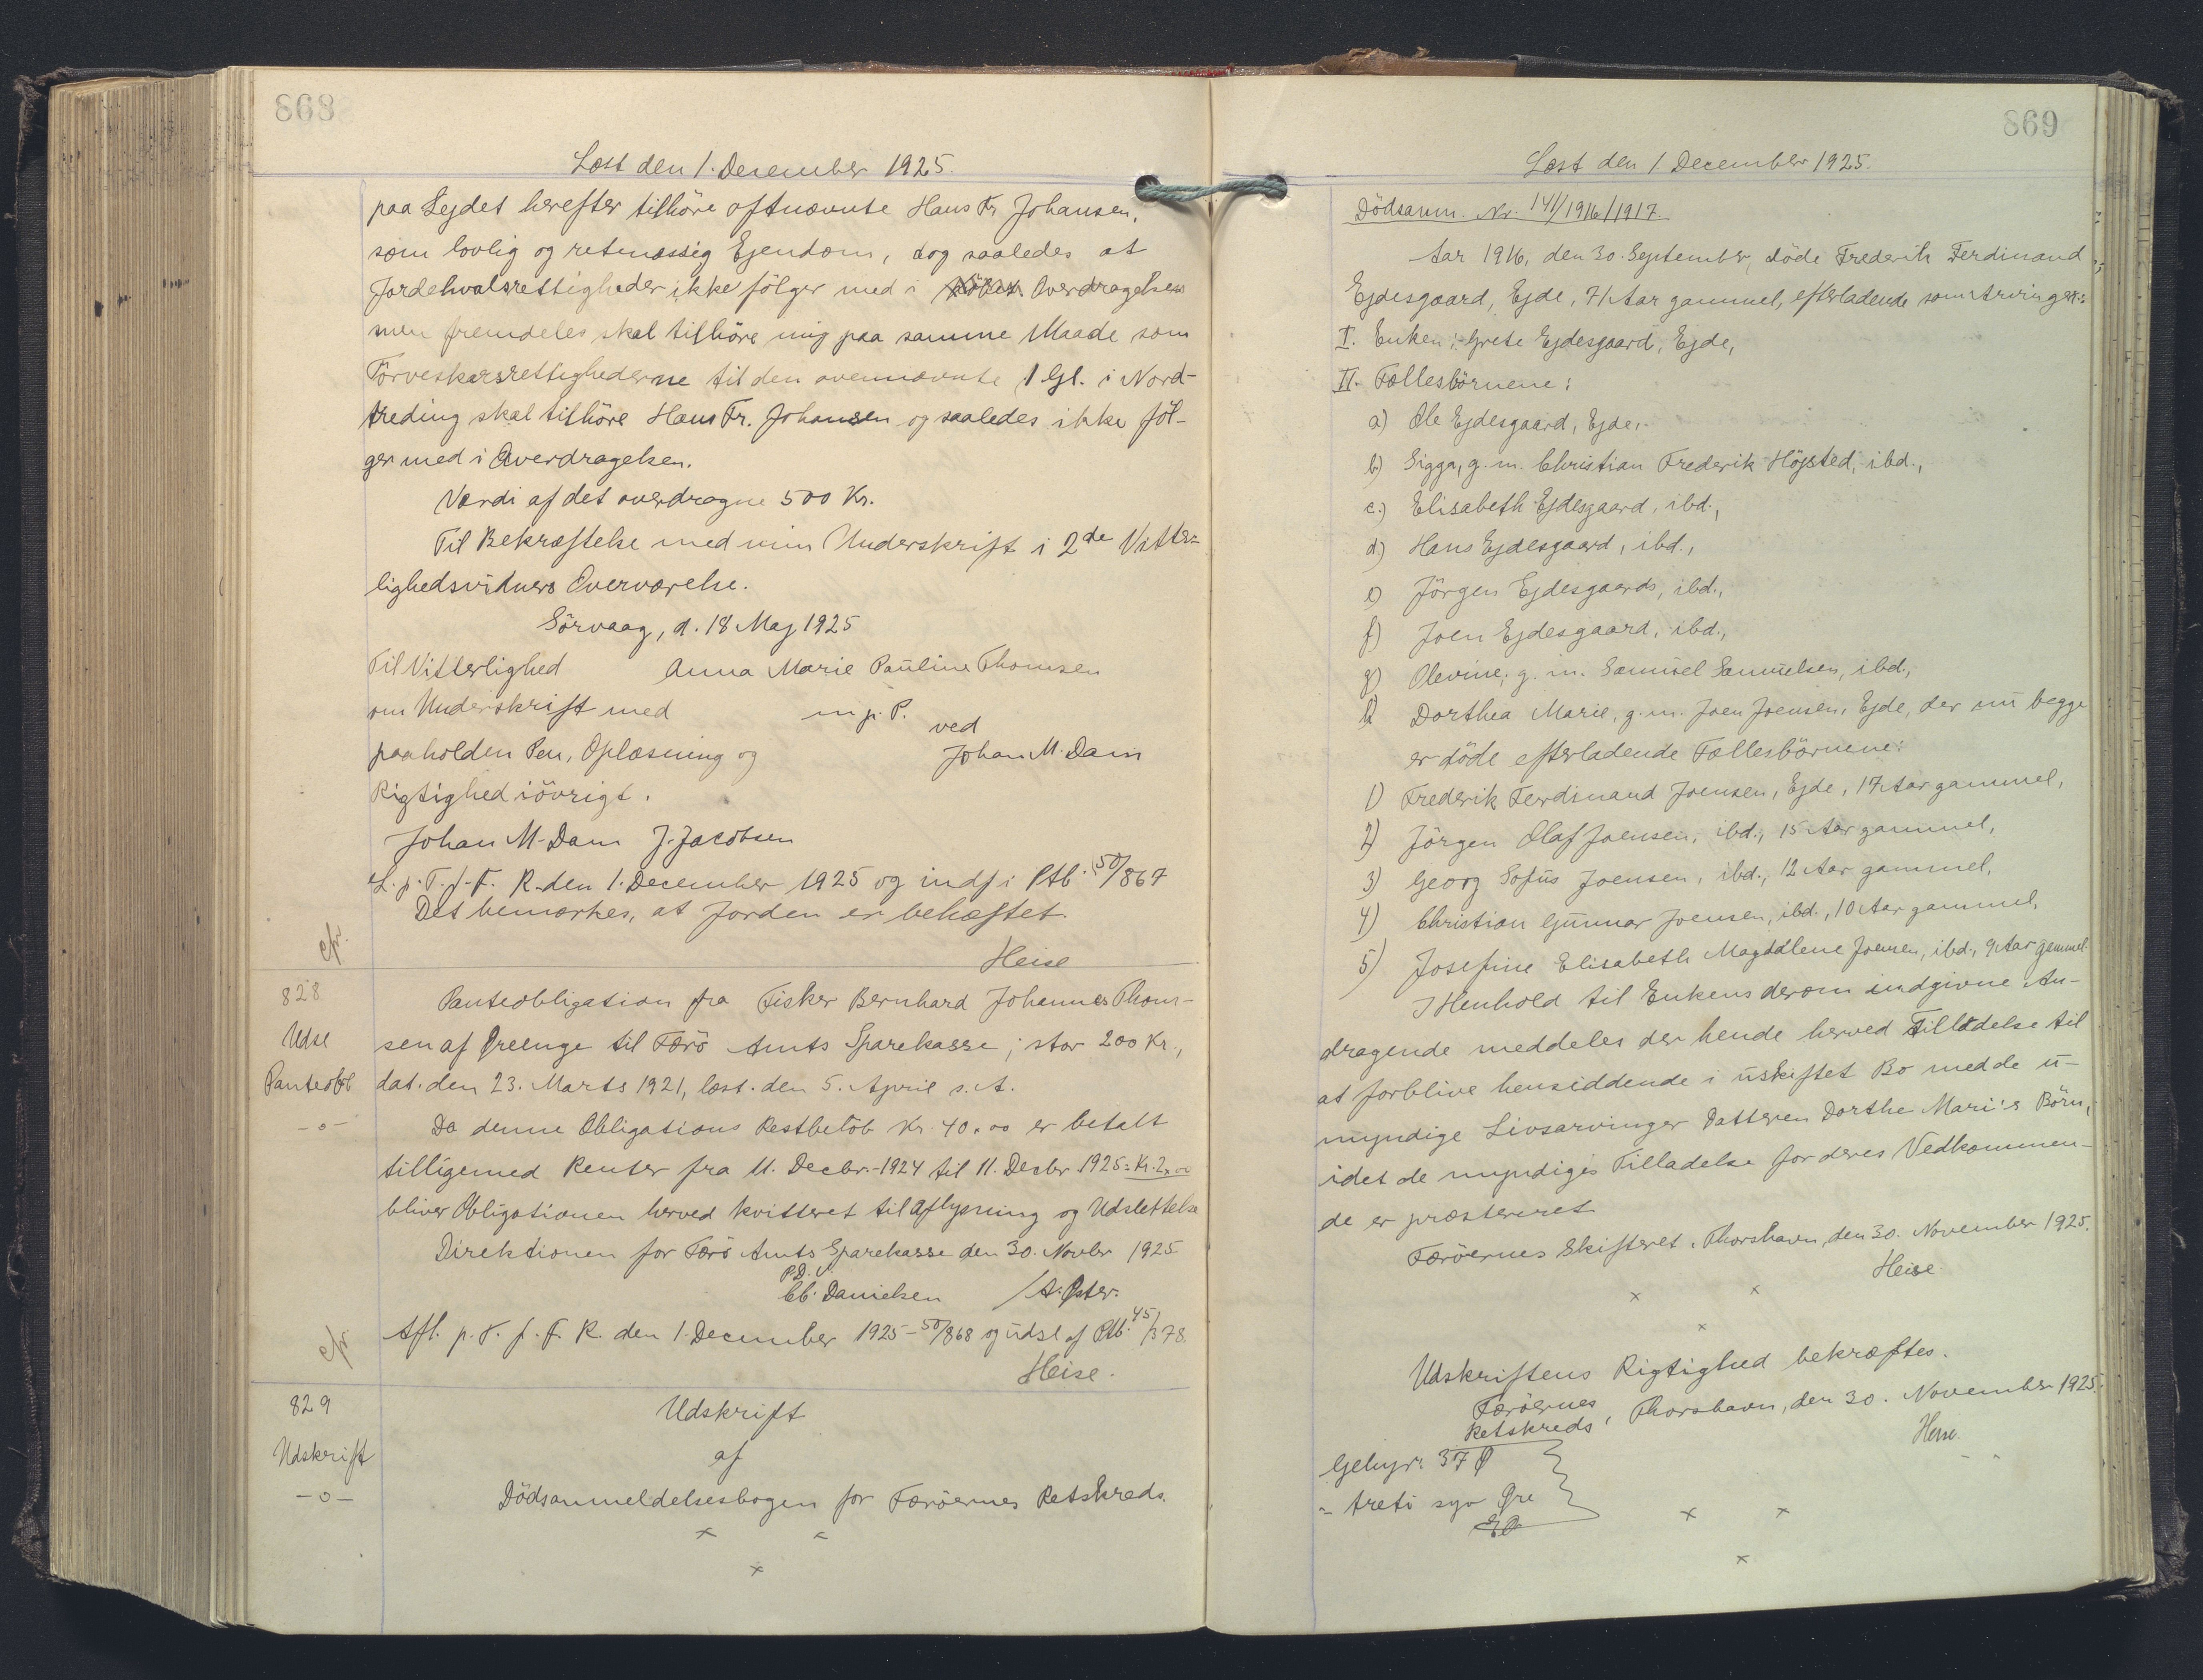 868
Læst den 1. December 1925.
paa Lejdet herefter tilhöre oftnævnte Hans Fr. Johansen,
som lovlig og retmæssig Ejendom, dog saaledes at
Jordehvalsrettigheder ikke følger med i Overdragelsen
men fremdeles skal tilhöre mig paa samme Maade som
Törveskærsrettighederne til den ovennævnte 1 Gl. i Nord-
treding skal tilhöre Hans Fr. Johansen og saaledes ikke föl-
ger med i Overdragelsen.
Værdi af det overdragne 500 Kr.
Til Bekræftelse med min Underskrift i 2de Vitter-
lighedsvidners Overværelse.
Sörvaag, d. 18 Maj 1925
Til Vitterlighed Anna Marie Pauline Thomsen
om Underskrift med m. p. P.
ved
paaholden Pen, Oplæsning og Johan M. Dam
Rigtighed iövrigt.
Johan M. Dam J. Jacobsen
L. p. T. f. F. R. den 1. December 1925 og indf i Ptb. 50/867
Det bemærkes, at Jorden er behæftet.
cfr.
Heise
828
Udsl
Panteobl
-o-
Panteobligation fra Fisker Bernhard Johannes Thom-
sen af Qreenge til Færö Amts Sparekasse; stor 200 Kr.,
dat. den 23. Marts 1921, læst. den 5. April s. A.
Da denne Obligations Restbelöb Kr. 40.00 er betalt
tilligemed Renter fra 11. Decbr.-1924 til 11. Decbr 1925 = Kr. 2,00
bliver Obligationen herved kvitteret til Aflysning og Udslettelse
Direktionen for Færö Amts Sparekasse den 30. Novbr 1925
P.D.V.
Cb. Danielsen /A. Öster.
Afl. p. T. f. F. R. den 1. December 1925 - 50/868 og udsl af Ptb. 45/378.
cfr
Heise.
829
Udskrift
-o-
Udskrift
af
Dödsanmeldelsesbogen for Færöernes Retskreds.
x x
x
869
Læst den 1 December 1925.
Dödsanm. Nr. 141/1916/1917.
Aar 1916, den 30. September, döde Frederik Ferdinand
Ejdesgaard, Ejde, 71 Aar gammel, efterladende som Arvinger:
I. Enken: Grete Ejdesgaard, Ejde,
II. Fællesbörnene:
a) Ole Ejdesgaard, Ejde,
b) Sigga, g. m. Christian Frederik Höjsted, ibd.,
c.) Elisabeth Ejdesgaard, ibd.,
d) Hans Ejdesgaard, ibd.,
e) Jörgen Ejdesgaards, ibd.,
f) Joen Ejdesgaard, ibd.,
g) Olevine, g. m. Samuel Samuelsen, ibd.,
h) Dorthea Marie, g. m. Joen Joensen, Ejde, der nu begge
er döde efterladende Fællesbörnene:
1) Frederik Ferdinand Joensen, Ejde, 17 Aar gammel,
2) Jörgen Olaf Joensen, ibd., 15 Aar gammel,
3) Georg Sofus Joensen, ibd., 12 Aar gammel,
4) Christian Gunnar Joensen, ibd., 10 Aar gammel,
5) Josefine Elisabeth Magdalene Joensen, ibd., 9 Aar gammel.
I Henhold til Enkens derom indgivne An-
dragende meddeles der hende herved Tilladelse til
at forblive hensiddende i uskiftet Bo med de u-
myndige Livsarvinger Datteren Dorthe Marie's Börn,
idet de myndiges Tilladelse for deres Vedkommen-
de er præsteret
Færöernes Skifteret, Thorshavn, den 30. November 1925.
Heise
x x
x
Udskriftens Rigtighed bekræftes.
Færöernes Retskreds, Thorshavn, den 30. November 1925.
Heise.
Gebyr: 37 Ø
- treti syv Øre
x x
x